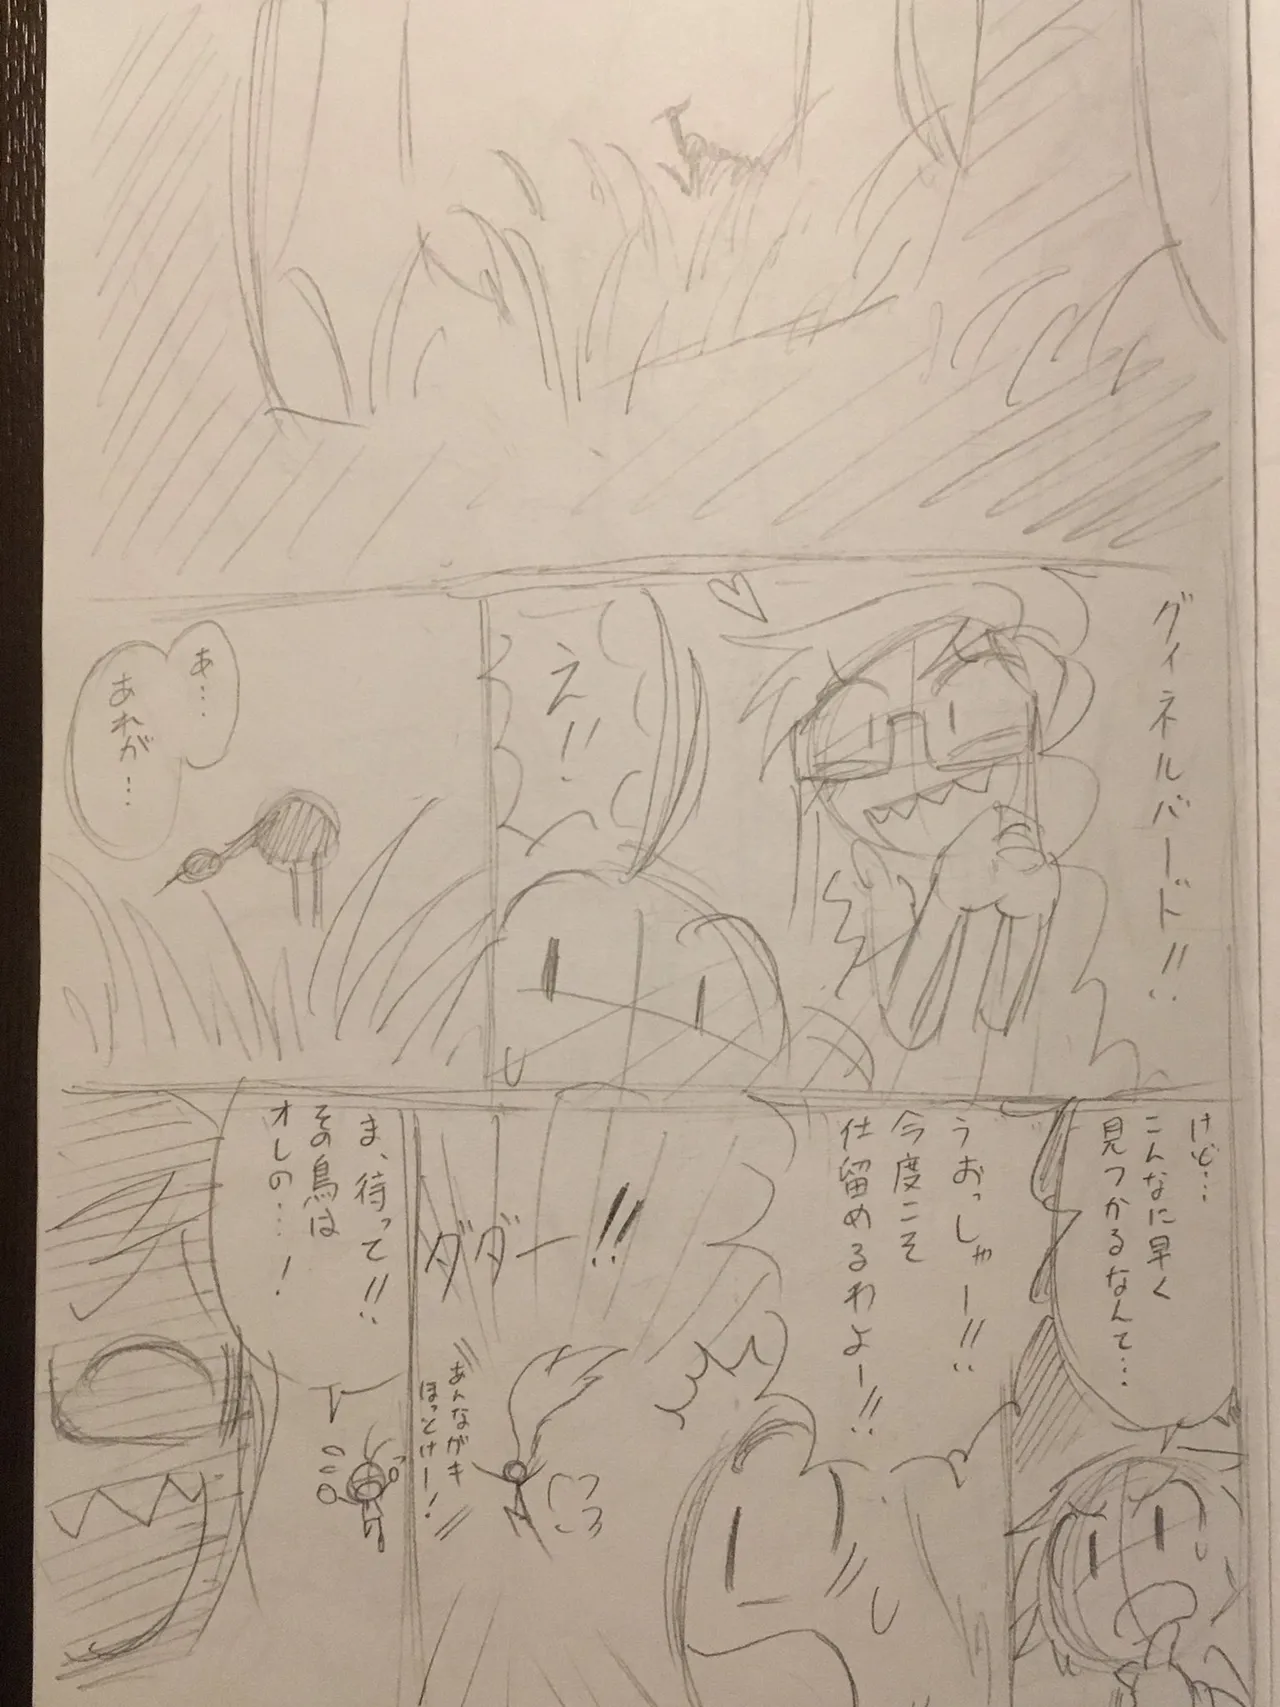 グィネルバード!!
え!!
あ…
あれが…
けど…
こんなに早く
見つかるなんて…
うおっしゃー!!
今度こそ
仕留めるわよー!!
ダダー!!
あんなガキ
ほっとけー!
ま、待って!!
その鳥は
オレの…!